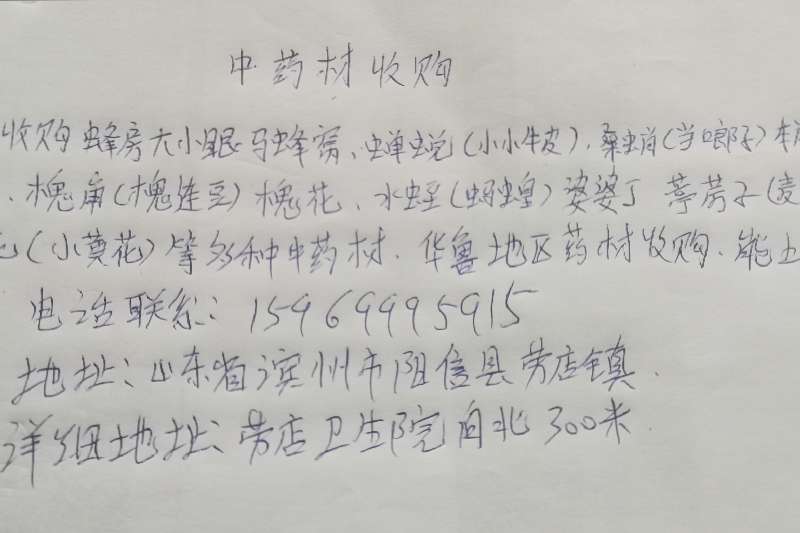 中药材收购
收购蜂房大小眼马蜂窝、蝉蜕(小小牛皮),桑蛸(当啷子)
、槐角(槐连豆)槐花、水蛭(蚂蝗)婆婆丁 葶苈子(
(小黄花)等多种中药材.华鲁地区药材收购.能上
电话联系:15969995915
地址:山东省滨州市阳信县劳店镇.
详细地址:劳店卫生院向北300米.